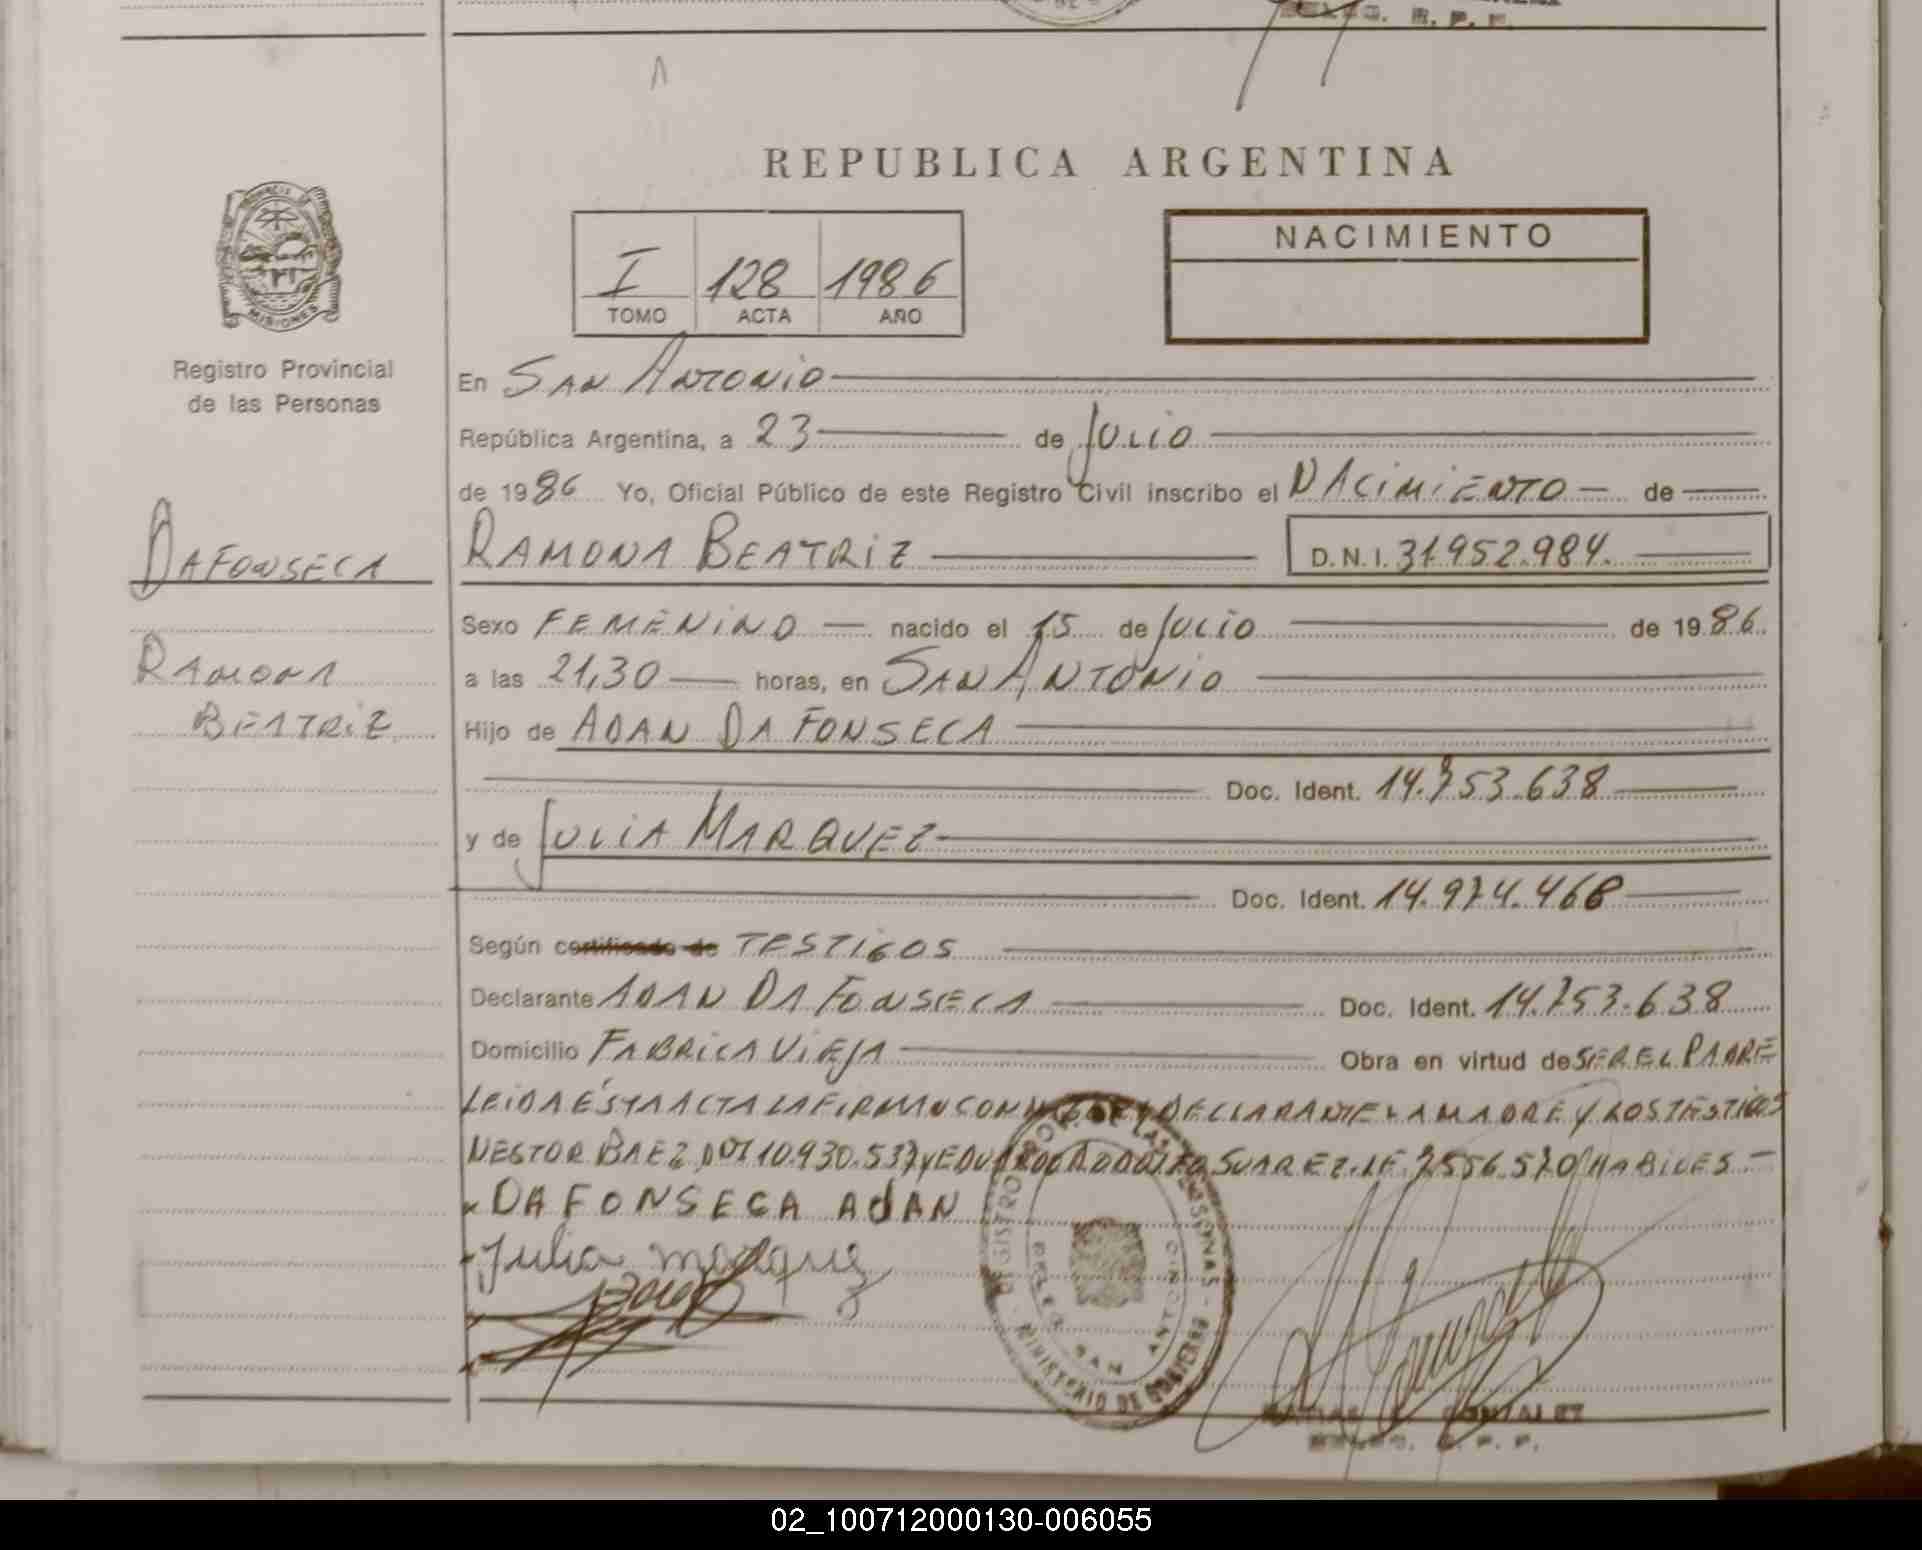 REPUBLICA ARGENTINA
I 128 1986
TOMO ACTA AÑO
NACIMIENTO
MISIONES
Registro Provincial
de las Personas
DAFONSECA
RAMONA
BEATRIZ
En SAN ANTONIO
República Argentina, a 23 de JULIO
de 1986 Yo, Oficial Público de este Registro Civil inscribo el NACIMIENTO de
RAMONA BEATRIZ D.N.I. 31.952.984.
Sexo FEMENINO nacido el 15 de JULIO de 1986.
a las 21,30 horas, en SAN ANTONIO
Hijo de ADAN DA FONSECA
Doc. Ident. 14.753.638
y de JULIA MARQUEZ
Doc. Ident. 14.974.468
Según certificado de TESTIGOS
Declarante ADAN DA FONSECA Doc. Ident. 14.753.638
Domicilio FABRICA VIEJA Obra en virtud de SER EL PADRE
LEIDA ÉSTA ACTA LA FIRMAN CONMIGO EL DECLARANTE LA MADRE Y LOS TESTIGOS
NESTOR BAEZ DNI 10.930.537 Y EDUARDO ADOLFO SUAREZ L.E. 7556.570 HABILES.-
x DA FONSECA ADAN
Julia Marquez
REGISTRO PROV. DE LAS PERSONAS
SAN ANTONIO
MINISTERIO DE GOBIERNO
GONZALEZ
02_100712000130-006055